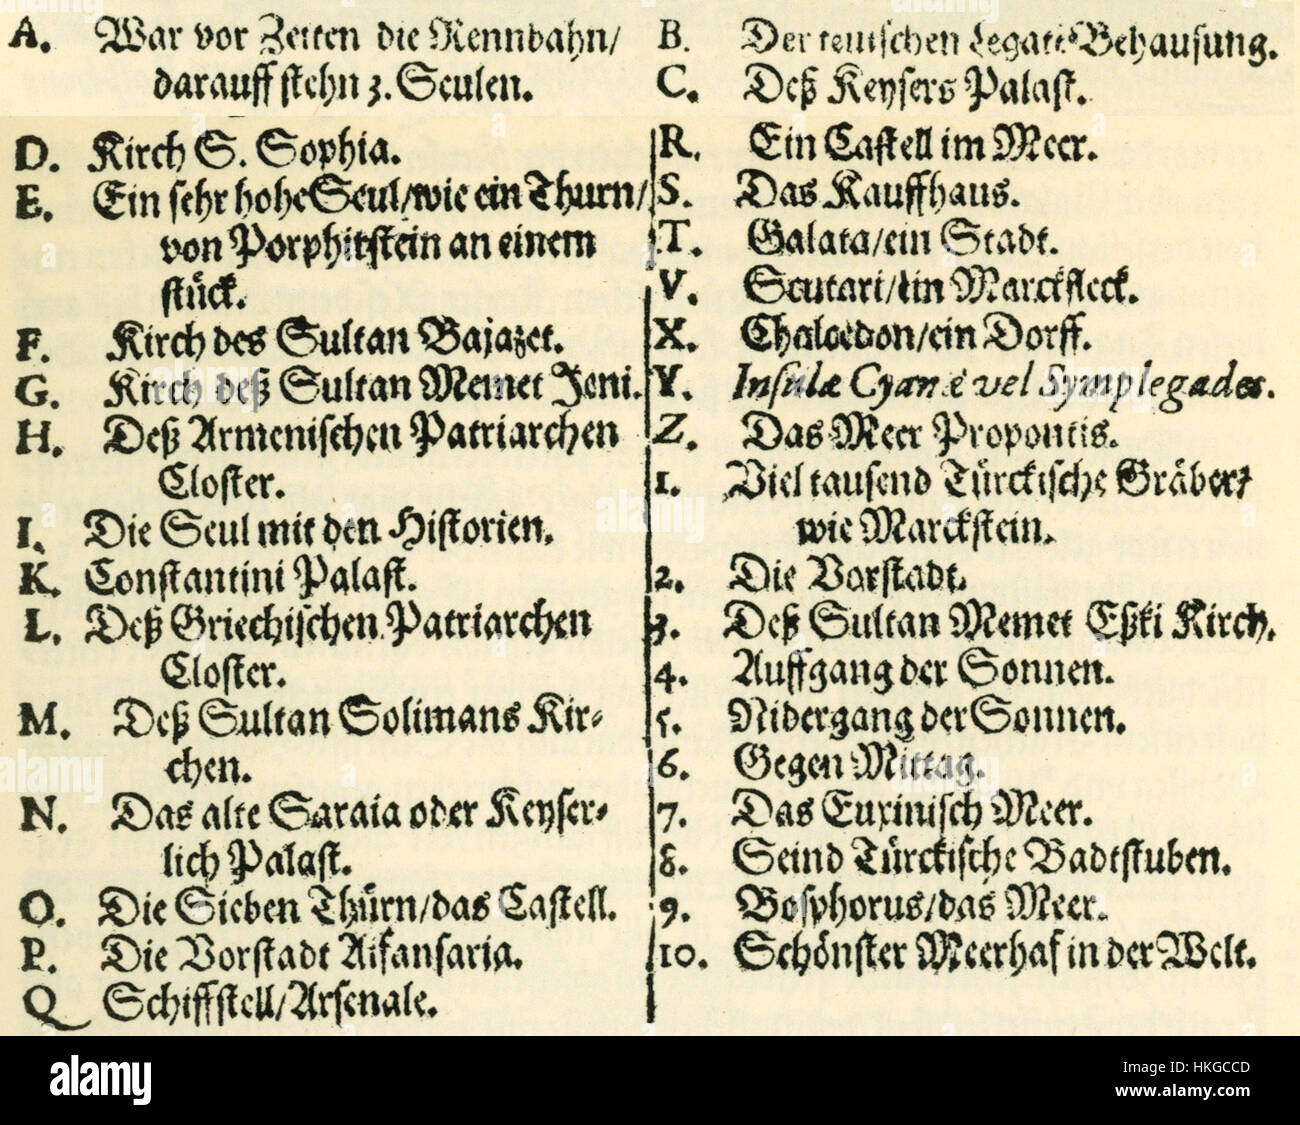 A. War vor Zeiten die Rennbahn/
darauff stehn 3. Seulen.
B. Der teutschen Legatē Behausung.
C. Deß Keysers Palast.
D. Kirch S. Sophia.
E. Ein sehr hohe Seul/wie ein Thurn/
von Porphitstein an einem
stück.
F. Kirch des Sultan Bajazet.
G. Kirch deß Sultan Memet Jeni.
H. Deß Armenischen Patriarchen
Closter.
I. Die Seul mit den Historien.
K. Constantini Palast.
L. Deß Griechischen Patriarchen
Closter.
M. Deß Sultan Solimans Kir-
chen.
N. Das alte Saraia oder Keyser-
lich Palast.
O. Die Sieben Thürn/das Castell.
P. Die Vorstadt Aifansaria.
Q Schiffstell/Arsenale.
R. Ein Castell im Meer.
S. Das Kauffhaus.
T. Galata/ein Stadt.
V. Scutari/ein Marckfleck.
X. Chalcedon/ein Dorff.
Y. Insulæ Cyaneæ vel Symplegades.
Z. Das Meer Propontis.
1. Viel tausend Türckische Gräber/
wie Marckstein.
2. Die Vorstadt.
3. Deß Sultan Memet Eßki Kirch.
4. Auffgang der Sonnen.
5. Nidergang der Sonnen.
6. Gegen Mittag.
7. Das Euxinisch Meer.
8. Seind Türckische Badtstuben.
9. Bosphorus/das Meer.
10. Schönster Meerhaf in der Welt.
alamy
Image ID: HKGCCD
www.alamy.com